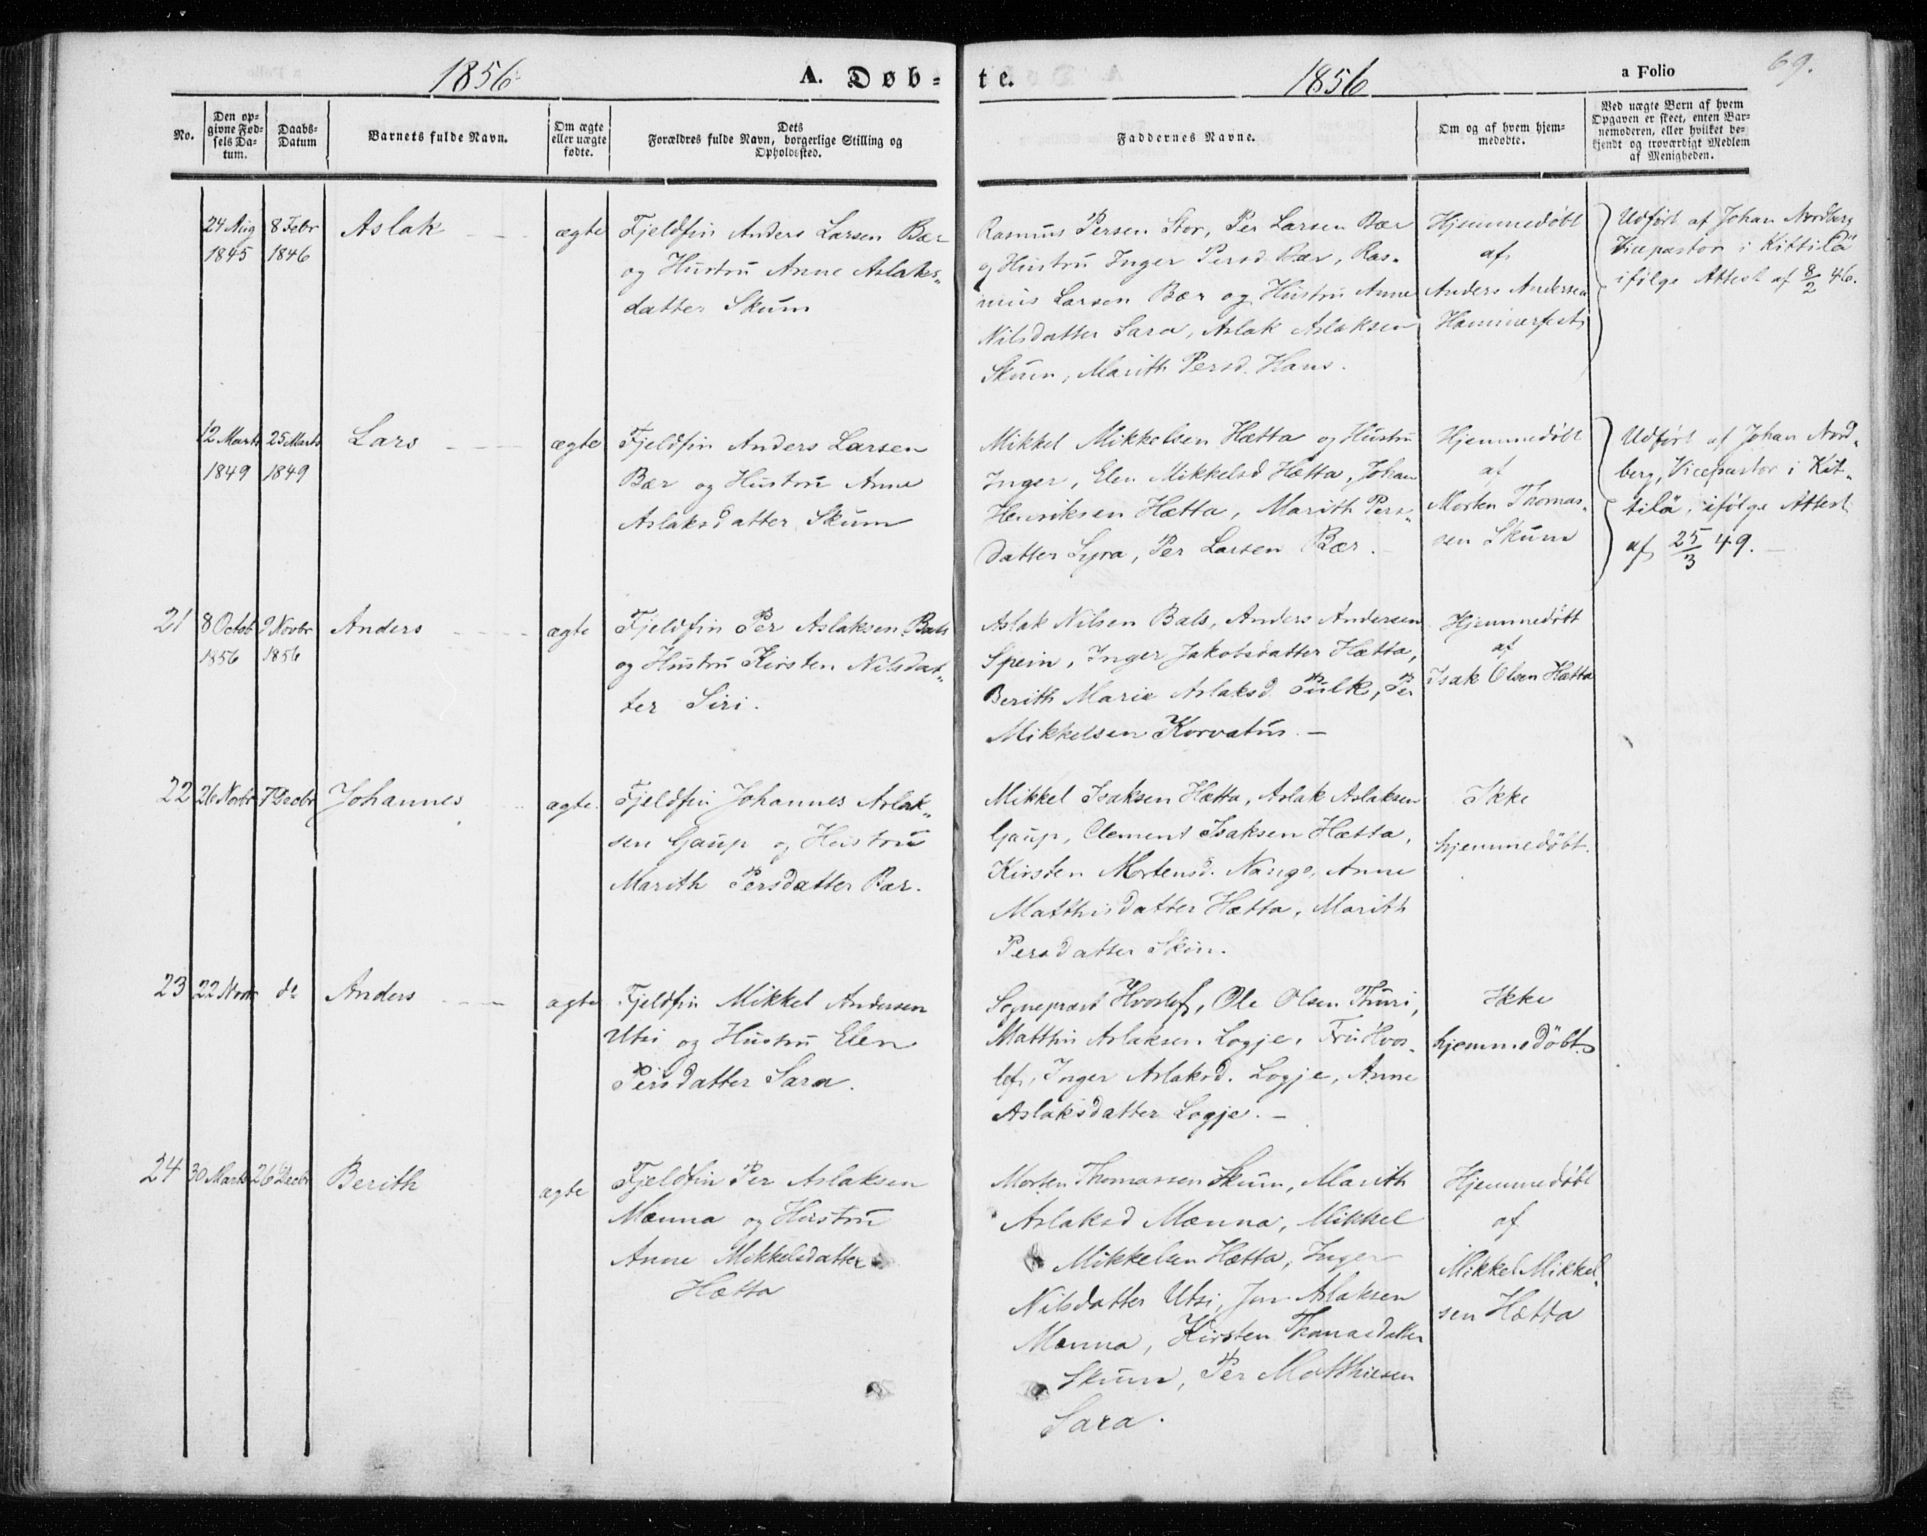 1856 A. Døb=
No.
Den op-
givne Fød-
sels Da-
tum.
Daabs-
Datum
Barnets fulde Navn.
Om ægte
eller uægte
fødte.
Dets
Forældres fulde Navn, borgerlige Stilling og
Opholdssted.
24 Aug
1845
8 Febr
1846
Aslak
ægte
Fjeldfin Anders Larsen Bær
og Hustru Anne Aslaks-
datter Skum
12 Marts
1849
25 Marts
1849
Lars
ægte
Fjeldfin Anders Larsen
Bær og Hustru Anne
Aslaksdatter Skum
21
8 Octob
1856
9 Novbr
1856
Anders
ægte
Fjeldfin Per Aslaksen Bals
og Hustru Kirsten Nilsdat-
ter Siri.
22
26 Novbr
7 Decbr
Johannes
ægte
Fjeldfin Johannes Aslak-
sen Gaup og Hustru
Marith Persdatter Bær.
23
22 Novbr
do
Anders
ægte
Fjeldfin Mikkel Andersen
Utsi og Hustru Elen
Persdatter Sara.
24
30 Marts
26 Decbr
Berith
ægte
Fjeldfin Per Aslaksen
Mænna og Hustru
Anne Mikkelsdatter
Hætta
te. 1856 a Folio 69.
Faddernes Navne.
Om og af hvem hjem-
medøbte.
Ved uægte Børn af hvem
Opgaven er skeet, enten Bar-
nemoderen, eller hvilket be-
kjendt og troværdigt Medlem
af Menigheden.
Rasmus Persen Stor, Per Larsen Bær
og Hustru Inger Persd. Bær, Ras-
mus Larsen Bær og Hustru Anne
Nilsdatter Sara, Aslak Aslaksen
Skum, Marith Persd. Hans.
Hjemmedøbt
af
Anders Andersen
Hammerfest
Udført af Johan Nordberg
Vicepastor i Kittilä
ifølge Attest af 8/2 46.
Mikkel Mikkelsen Hætta og Hustru
Inger, Elen Mikkelsd Hætta, Johan
Henriksen Hætta, Marith Pers-
datter Syra, Per Larsen Bær.
Hjemmedøbt
af
Morten Thomas-
sen Skum
Udført af Johan Nord-
berg, Vicepastor i Kit-
tilä, ifølge Attest
af 25/3 49.
Aslak Nilsen Bals, Anders Andersen
Spein, Inger Jakobsdatter Hætta,
Berith Marie Aslaksd. Pulk, Per
Mikkelsen Korvatus.
Hjemmedøbt
af
Isak Olsen Hætta
Mikkel Isaksen Hætta, Aslak Aslaksen
Gaup, Clement Isaksen Hætta,
Kirsten Mortensd. Nango, Anne
Matthisdatter Hætta, Marith
Persdatter
Ikke
hjemmedøbt.
Sognepræst Hvoslef, Ole Olsen Thuri,
Matthis Aslaksen Logje, Fru Hvos-
lef, Inger Aslaksd. Logje, Anne
Aslaksdatter Logje.
Ikke
hjemmedøbt
Morten Thomassen Skum, Marith
Aslaksd Mænna, Mikkel
Mikkelsen Hætta, Inger
Nilsdatter Utsi, Jon Aslaksen
Mænna, Kirsten Thomasdatter
Skum, Per Matthiesen
Sara.
Hjemmedøbt
af
Mikkel Mikkel-
sen Hætta